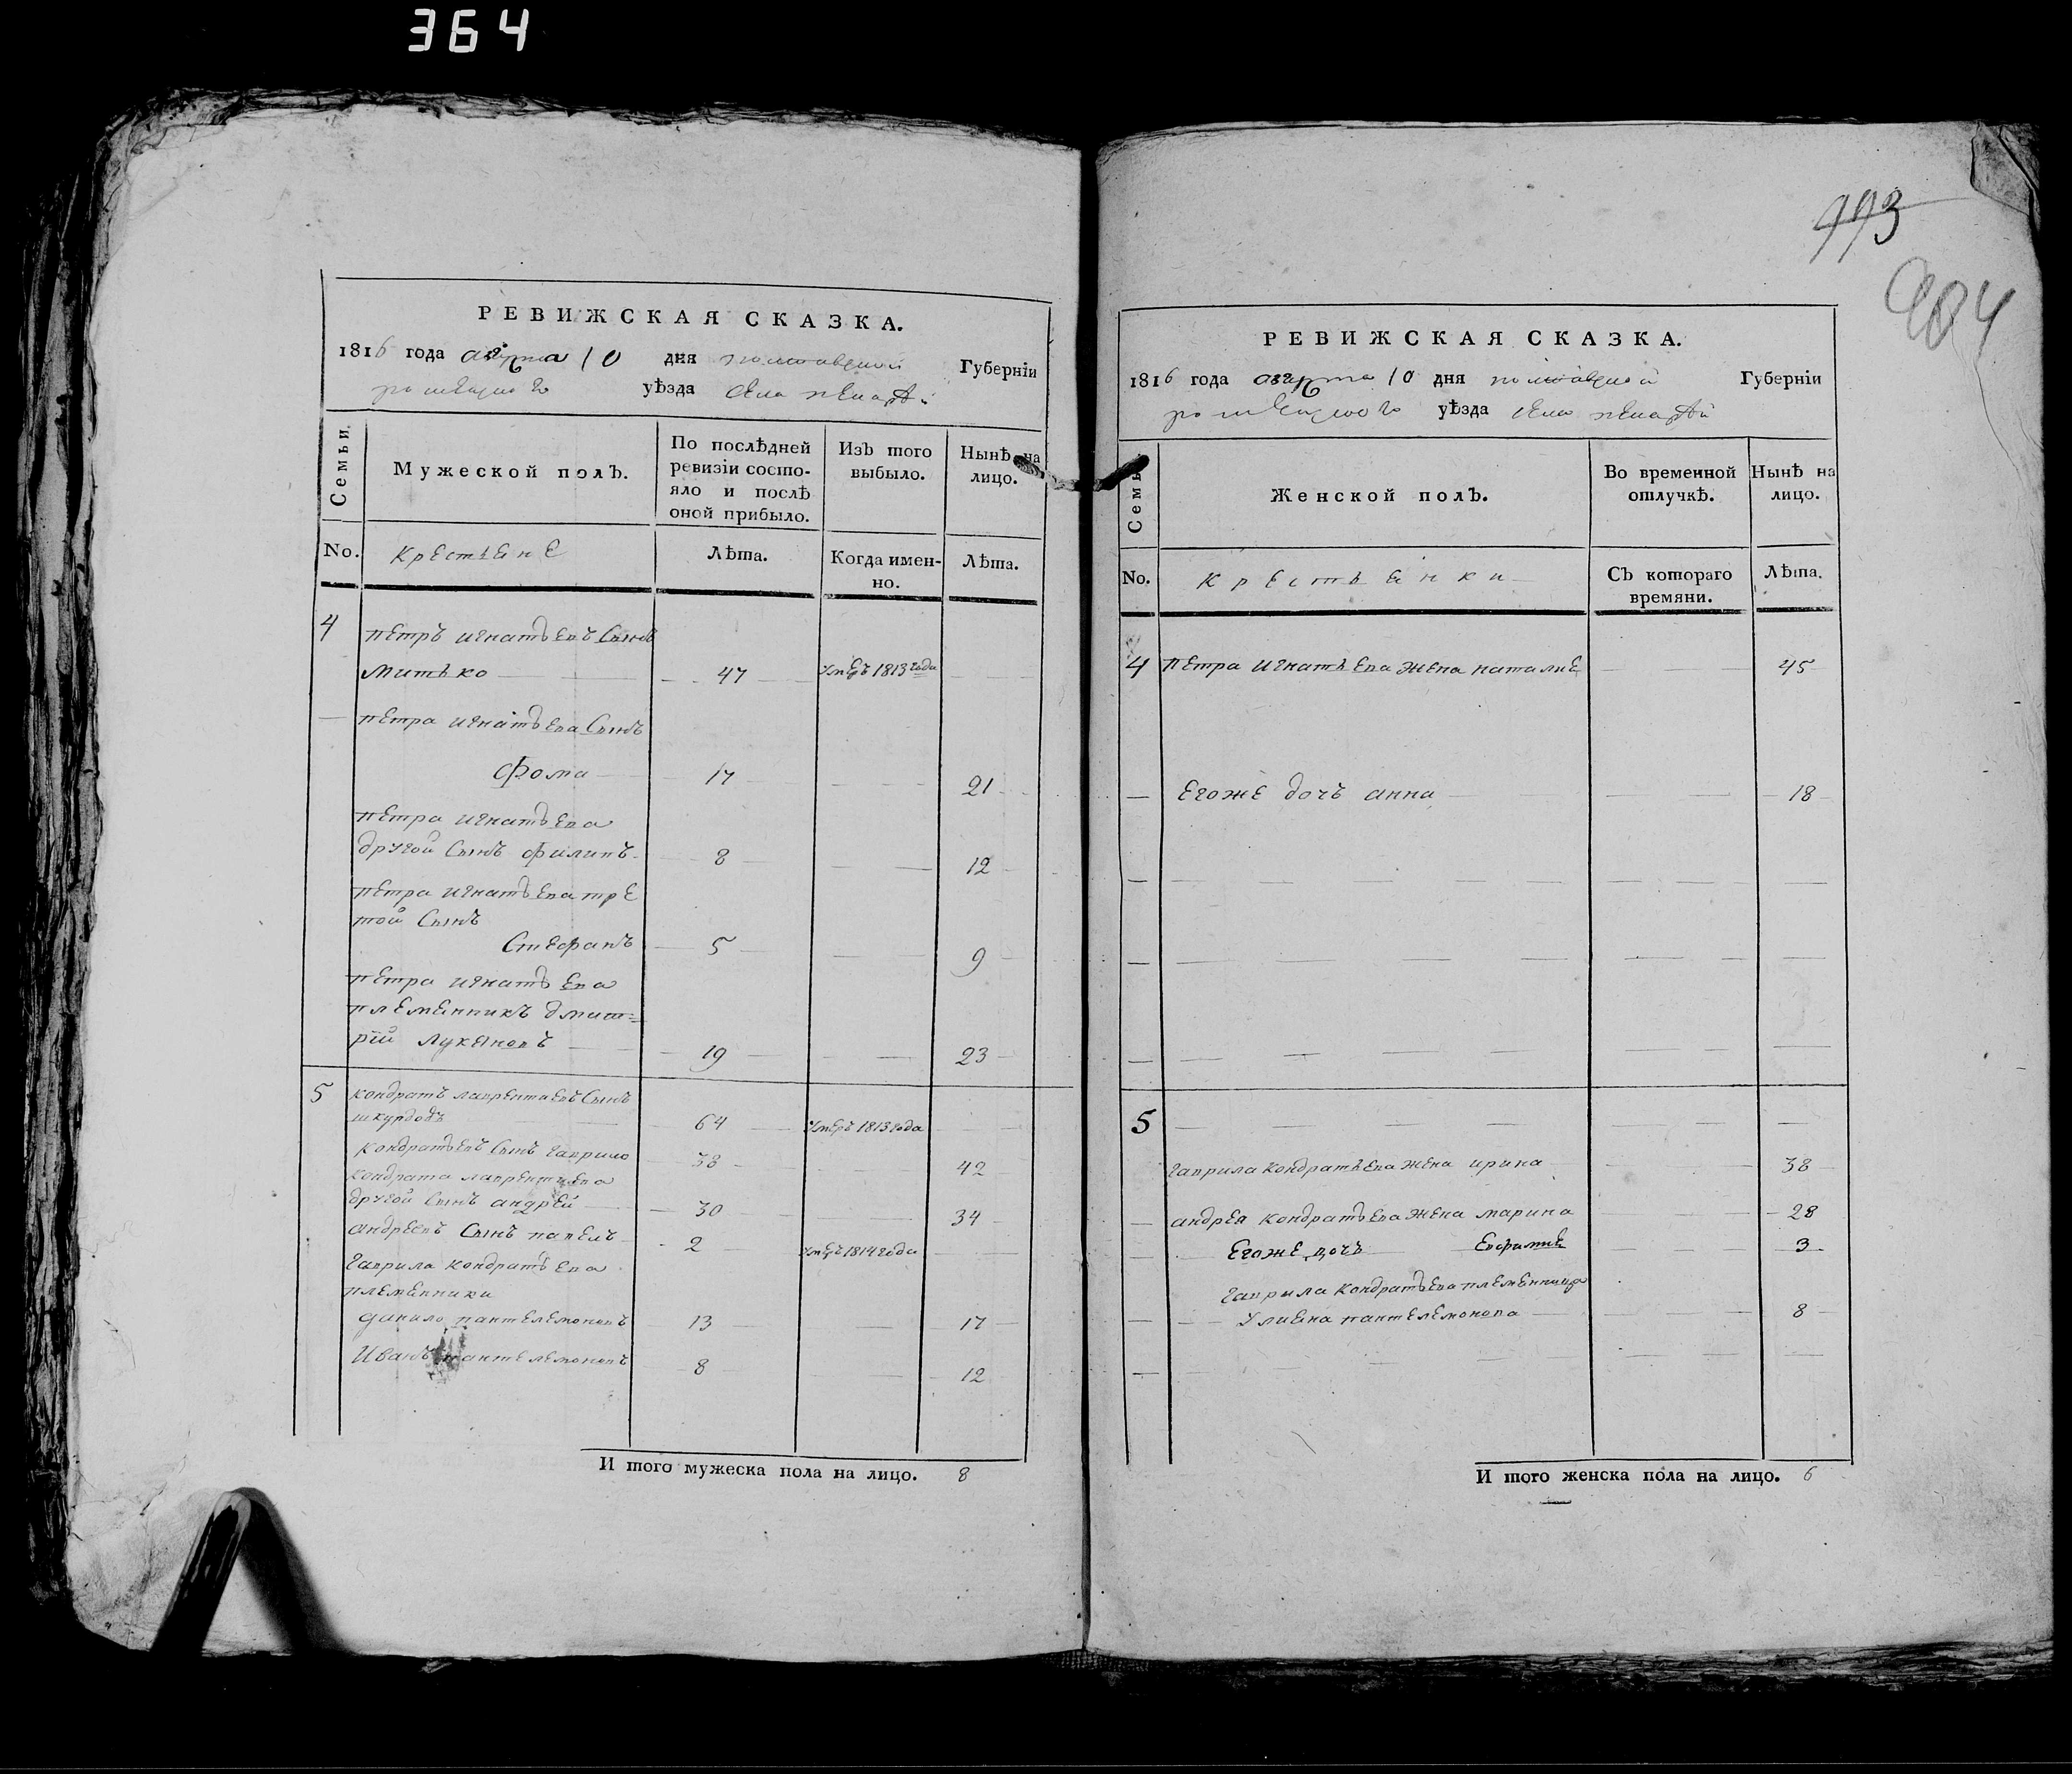 364
993
904
РЕВИЖСКАЯ СКАЗКА.
1816 года марта 10 дня полтавской Губерніи
уѣзда села
Семьи.
Мужеской полъ.
По послѣдней ревизіи состо-
яло и послѣ
оной прибыло.
Изъ того
выбыло.
Нынѣ на
лицо.
No.
Крестьяне
Лѣта.
Когда имен-
но.
Лѣта.
4 петръ игнатьевъ Сынъ
Митько 47 умеръ 1813 года
петра игнатьева Сынъ
фома 17 21
петра игнатьева
другой Сынъ филипъ 8 12
петра игнатьева тре
той Сынъ
Стефанъ 5 9
петра игнатьева
племянникъ дмит=
рій лукяновъ 19 23
5 кондратъ лаврентаевъ Сынъ
шкурдода 64 умеръ 1813 года
Кондратьевъ Сынъ гаврило 38 42
кондрата лаврентиева
другой Сынъ андрей 30 34
андреевъ Сынъ павелъ 2 умеръ 1814 года
гаврила кондратьева
племянники
данило пантелемоновъ 13 17
Иванъ пантелемоновъ 8 12
И того мужеска пола на лицо. 8
РЕВИЖСКАЯ СКАЗКА.
1816 года марта 10 дня полтавской Губерніи
уѣзда села
Семьи
Женской полъ.
Во временной
отлучкѣ.
Нынѣ на
лицо.
No.
Крестьянки
Съ котораго
времяни.
Лѣта.
4 Петра Игнатьева жена наталие 45
Егоже дочъ анна 18
5
гаврила кондратьева жена ирина 38
андрея кондратьева жена марина 28
Егоже дочъ Евфимие 3
гаврила кондратьева племянница
Улияна пантелемонова 8
И того женска пола на лицо. 6